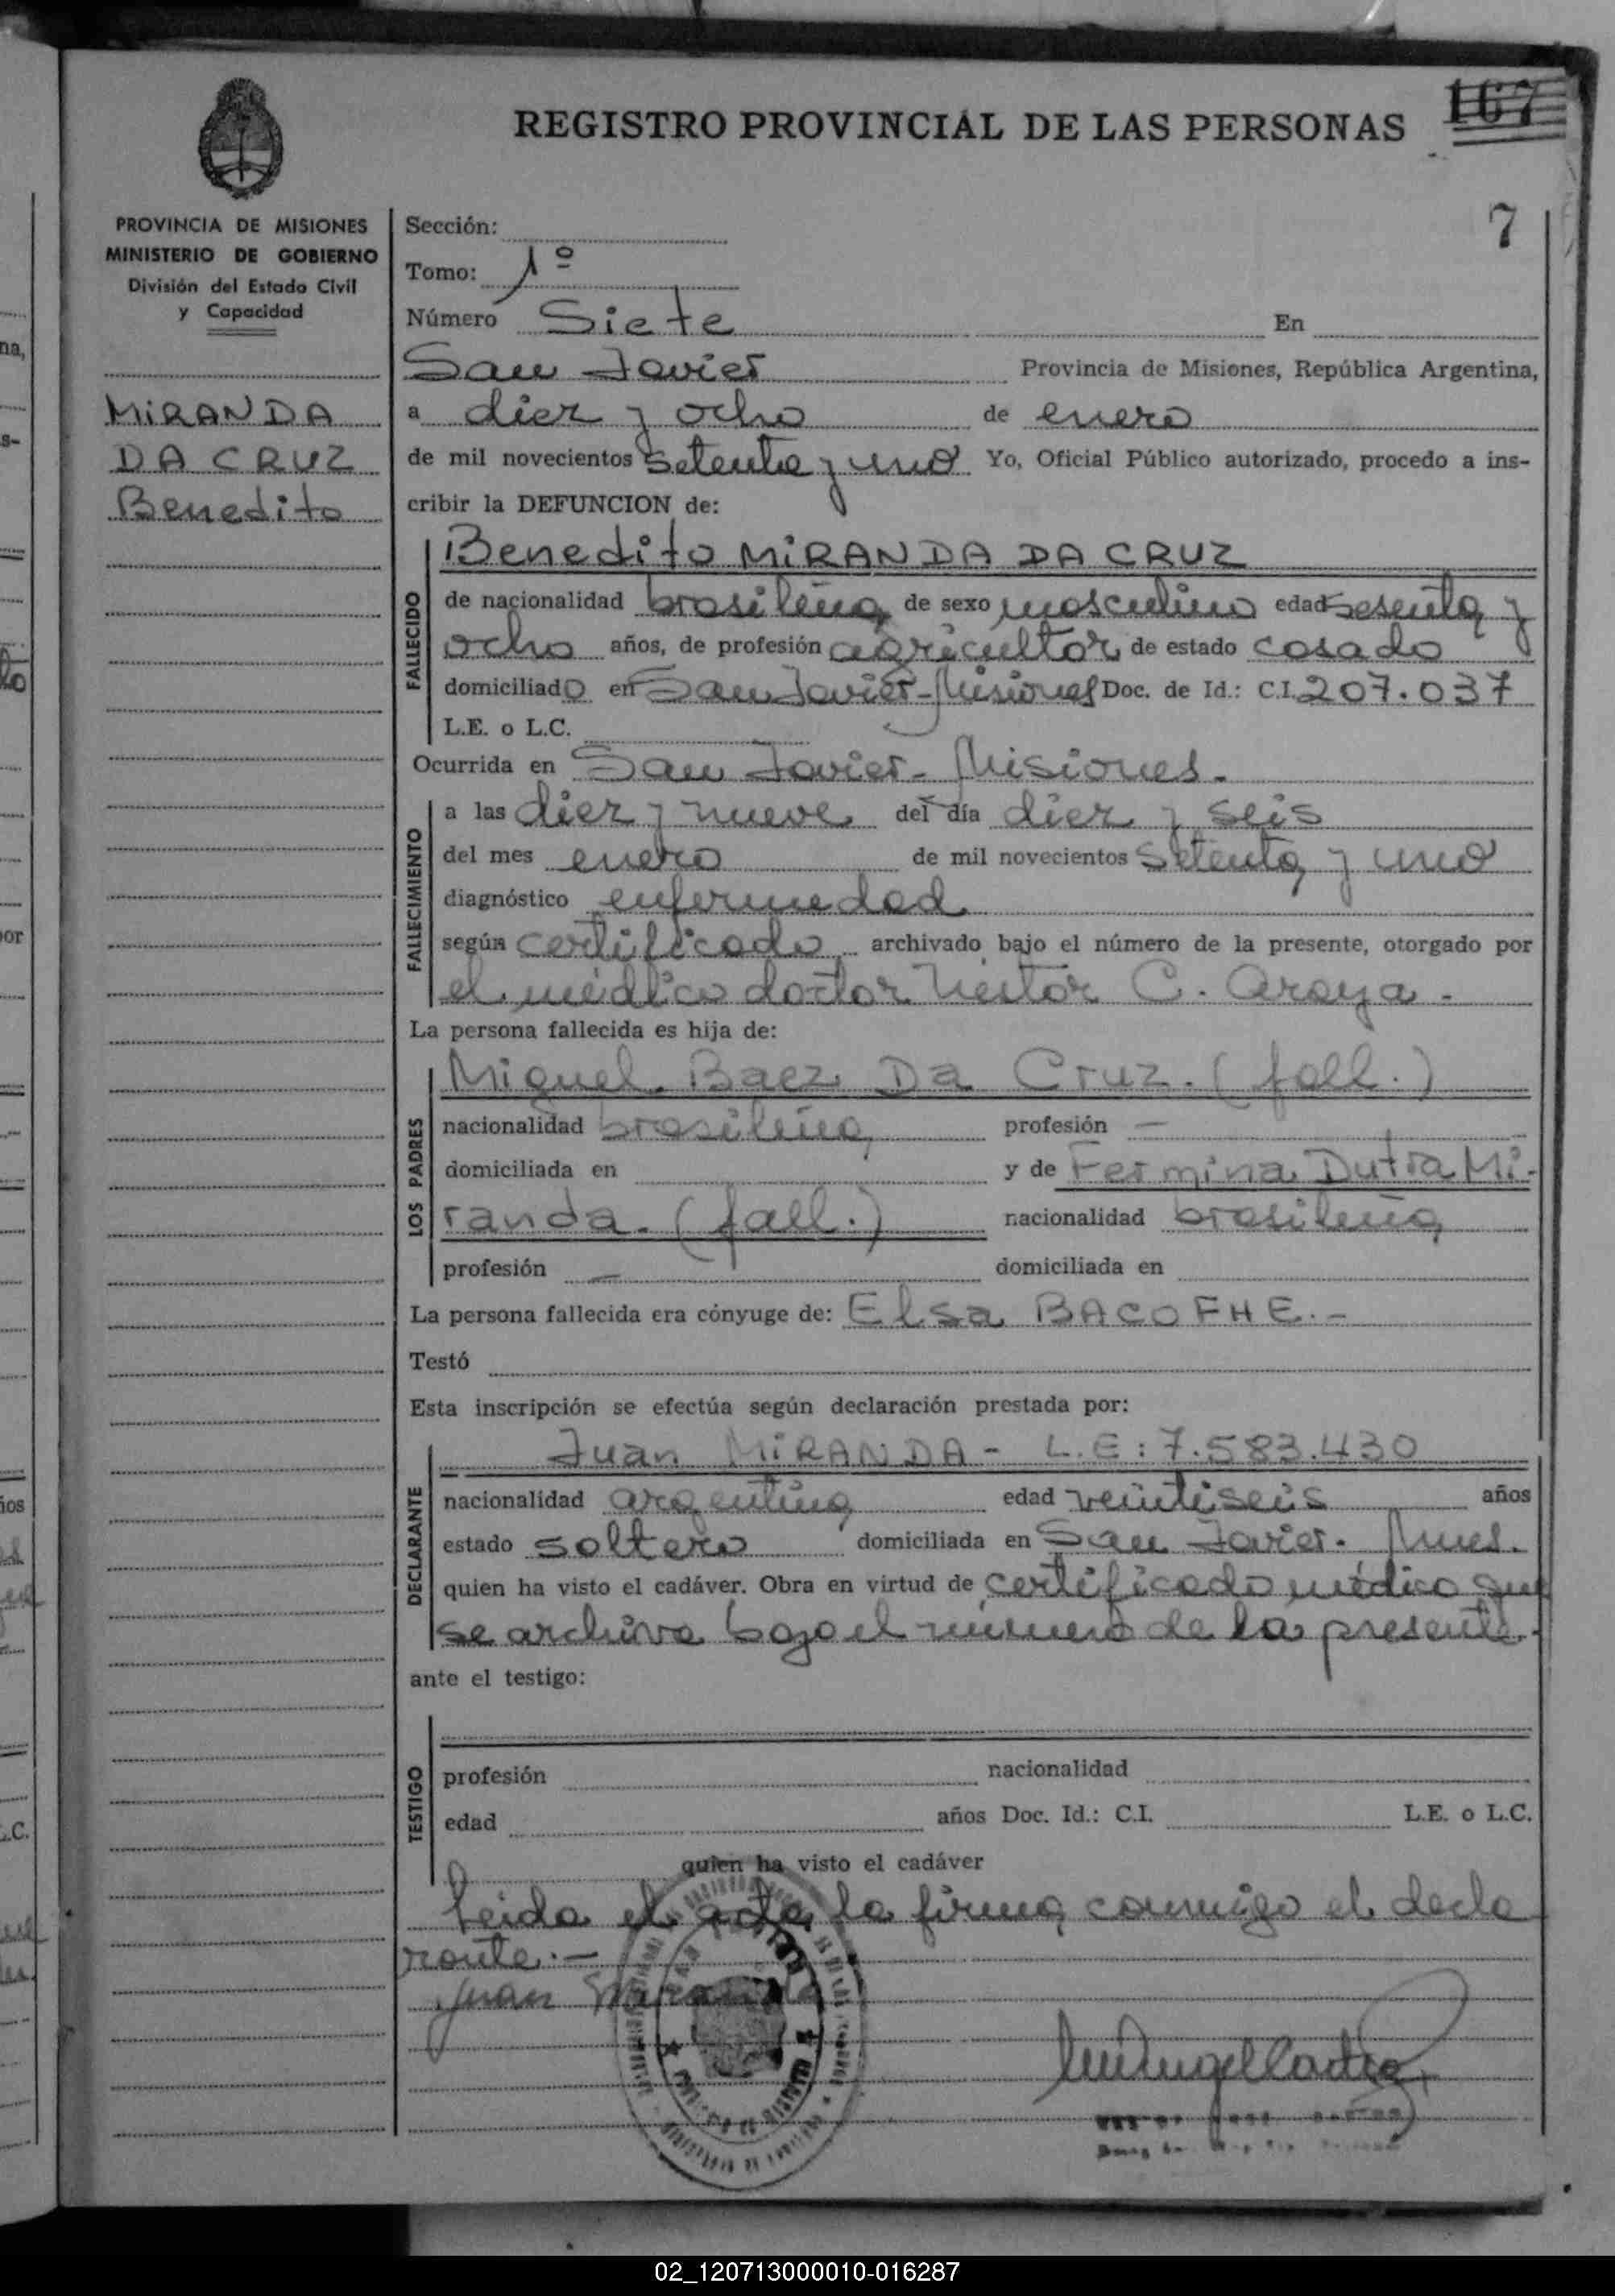 167
REGISTRO PROVINCIAL DE LAS PERSONAS
7
PROVINCIA DE MISIONES
MINISTERIO DE GOBIERNO
División del Estado Civil
y Capacidad
MIRANDA
DA CRUZ
Benedito
Sección:
Tomo: 1º
Número Siete En
San Javier Provincia de Misiones, República Argentina,
a diez y ocho de enero
de mil novecientos setenta y uno Yo, Oficial Público autorizado, procedo a ins-
cribir la DEFUNCION de:
FALLECIDO
Benedito MIRANDA DA CRUZ
de nacionalidad brasileña de sexo masculino edad sesenta y
ocho años, de profesión agricultor de estado casado
domiciliado en San Javier-Misiones Doc. de Id.: C.I. 207.037
L.E. o L.C.
Ocurrida en San Javier- Misiones.
FALLECIMIENTO
a las diez y nueve del día diez y seis
del mes enero de mil novecientos setenta y uno
diagnóstico enfermedad
según certificado archivado bajo el número de la presente, otorgado por
el médico doctor Nestor C. Araya.
La persona fallecida es hija de:
LOS PADRES
Miguel Baez Da Cruz. (fall.)
nacionalidad brasileña profesión —
domiciliada en y de Fermina Dutra Mi-
randa. (fall.) nacionalidad brasileña
profesión — domiciliada en
La persona fallecida era cónyuge de: Elsa BACOFHE.-
Testó
Esta inscripción se efectúa según declaración prestada por:
DECLARANTE
Juan MIRANDA - L.E: 7.583.430
nacionalidad argentina edad veintiseis años
estado soltero domiciliada en San Javier. Mnes.
quien ha visto el cadáver. Obra en virtud de certificado médico que
se archiva bajo el número de la presente.
ante el testigo:
TESTIGO
profesión nacionalidad
edad años Doc. Id.: C.I. L.E. o L.C.
quien ha visto el cadáver
Leida el acta, la firma conmigo el decla
rante.-
Juan Miranda
02_120713000010-016287